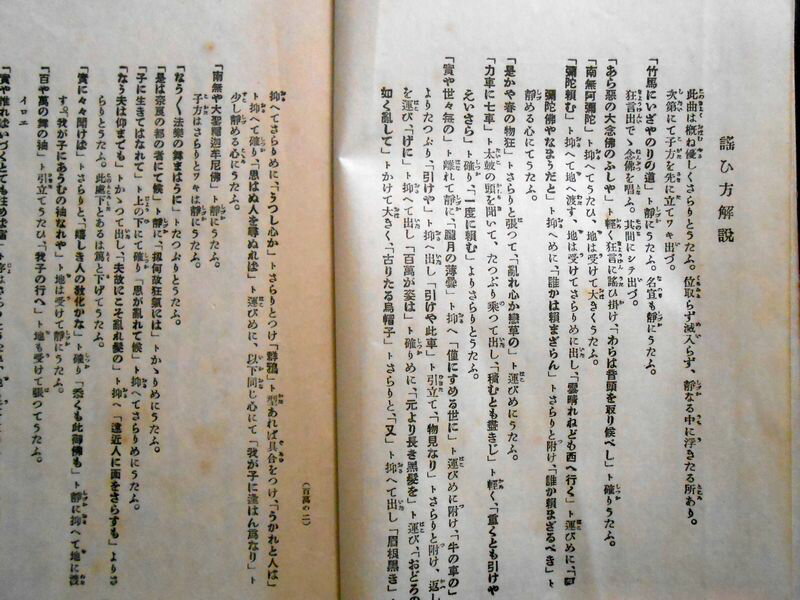 謡ひ方解説
此曲は概ね優しくさらりとうたふ。位取らず滅入らず、静なる中に浮きたる所あり。
次第にて子方を先に立てワキ出づ。
「竹馬にいざやのりの道」静にうたふ。名宣も静にうたふ。
狂言出でゝ念佛を唱ふ。其間にシテ出づ。
「あら惡の大念佛のふしや」ト輕く狂言に謡ひ掛け、「わらは音頭を取り候べし」ト確りうたふ。
「南無阿彌陀」ト抑へてうたひ、地は受けて大きくうたふ。
「彌陀頼む」ト抑へて地へ渡す、地は受けてさらりめに出し、「雲晴れねども西へ行く」ト運びめに、「阿
彌陀佛やなまうだと」ト抑へめに、「誰かは頼まざらん」ト さらりと附け、「誰か頼まざるべき」ト
靜める心にてうたふ。
「是かや春の物狂」ト さらりと張つて、「亂れ心か戀草の」ト運びめにうたふ。
「力車に七車」ト太鼓の頭を聞いて、たつぷり乘つて出し、「積むとも盡きじ」ト輕く、「重くとも引けや
えいさら」ト確り、「一度に頼む」よりさらりとうたふ。
「實や世々毎の」ト離れて靜に、「朧月の薄曇」ト抑へ、「僅にすめる世に」ト運びめに附け、「牛の車の」
よりたつぷり、「引けや」ト抑へ出し、「引けや此車」ト引立て、「物見なり」ト さらりと附け、返し
を運び、「げに」ト抑へて出し、「百萬が姿は」ト確りめに、「元より長き黑髮を」ト運び、「おどろの
如く亂して」ト かけて大きく、「古りたる烏帽子」ト さらりと、「又」ト抑へて出し、「眉根黑き」ト
抑へてさらりめに、「うつし心か」ト さらりとつけ、「群鴉」ト型あれば具合をつけ、「うかれと人は」
ト抑へて確り、「思はぬ人を尋ぬれば」ト運びめに、以下同じ心にて「我が子に逢はん爲なり」ト
少し靜める心にうたふ。
「南無や大聖釋迦牟尼佛」ト運びめにうたふ。
子方はさらりとワキは靜にうたふ。
「なうなう法樂の舞まはうに」ト たつぷりとうたふ。
「是は奈良の都の者にて候」ト確に、「扨何故狂氣には」ト かゝりめにうたふ。
「子に生きてはなれて」ト上の下にて確り、「思が亂れて候」ト抑へてさらりめにうたふ。
「なう夫は仰までも」ト かゝつて出し、「夫故にこそ亂れ髮の」ト抑へ、「遠近人に面をさらすも」よりさ
らりとうたふ。此處下とあるは寛と下げてうたふ。
「實に々々聞けば」ト さらりと、「嬉しき人の敎化かな」ト確り、「悉くも此御佛も」ト靜に抑へて地に渡
す。「我が子にあうむの袖なれや」ト地は受けて靜にうたふ。
「百や萬の舞の袖」ト引立てうたひ、「我子の行へ」ト地も受けて張つてうたふ。
イロエ
「實や惟ればいづくとても住めば宿」
(百萬の二)